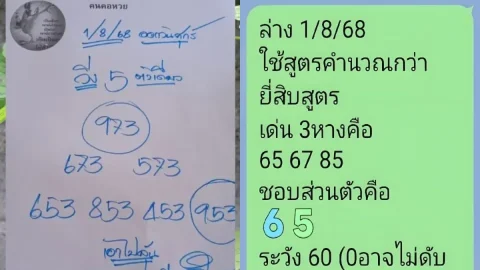 คนคอหวย
1/8/68 ออกวันศุกร์
วิ่ง 5 ตัวเดียว
973
673 573
653 853 453 953
เอาไปลุ้น
ล่าง 1/8/68
ใช้สูตรคำนวณกว่า
ยี่สิบสูตร
เด่น 3หางคือ
65 67 85
ชอบส่วนตัวคือ
65
ระวัง 60 (0อาจไม่ดับ